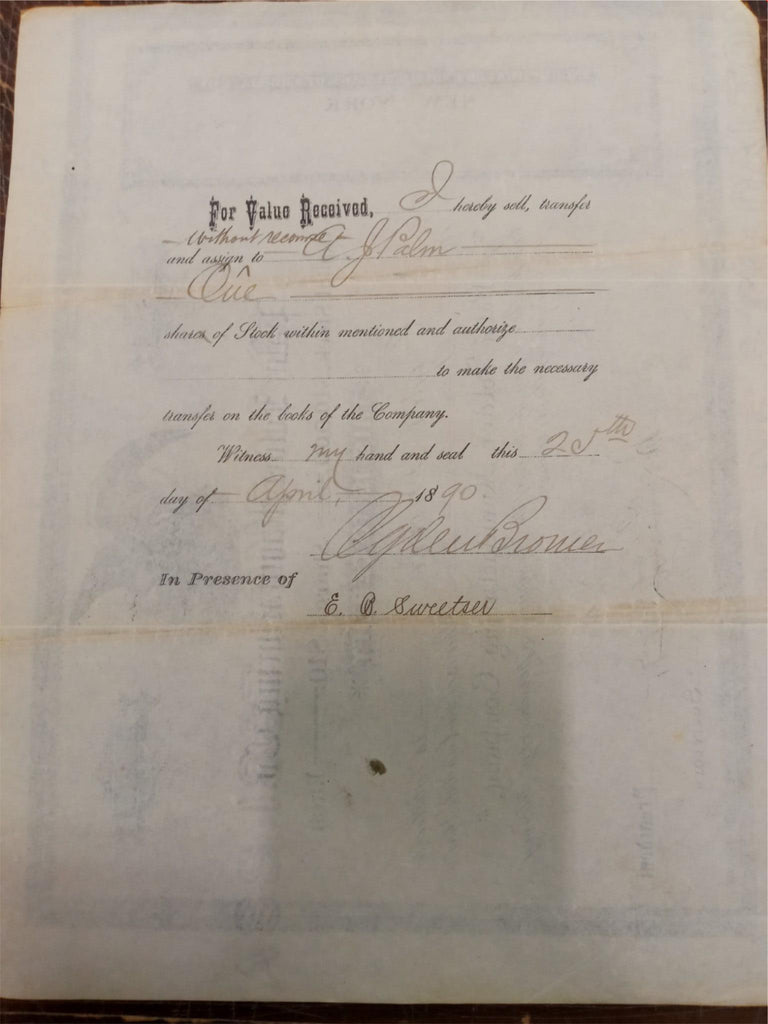 NEW YORK
For Value Received, I hereby sell, transfer
without recourse
and assign to A J Palm
One
shares of Stock within mentioned and authorize
to make the necessary
transfer on the books of the Company.
Witness my hand and seal this 25th
day of April, 1890.
Ogden Brower
In Presence of
E. B. Sweetser